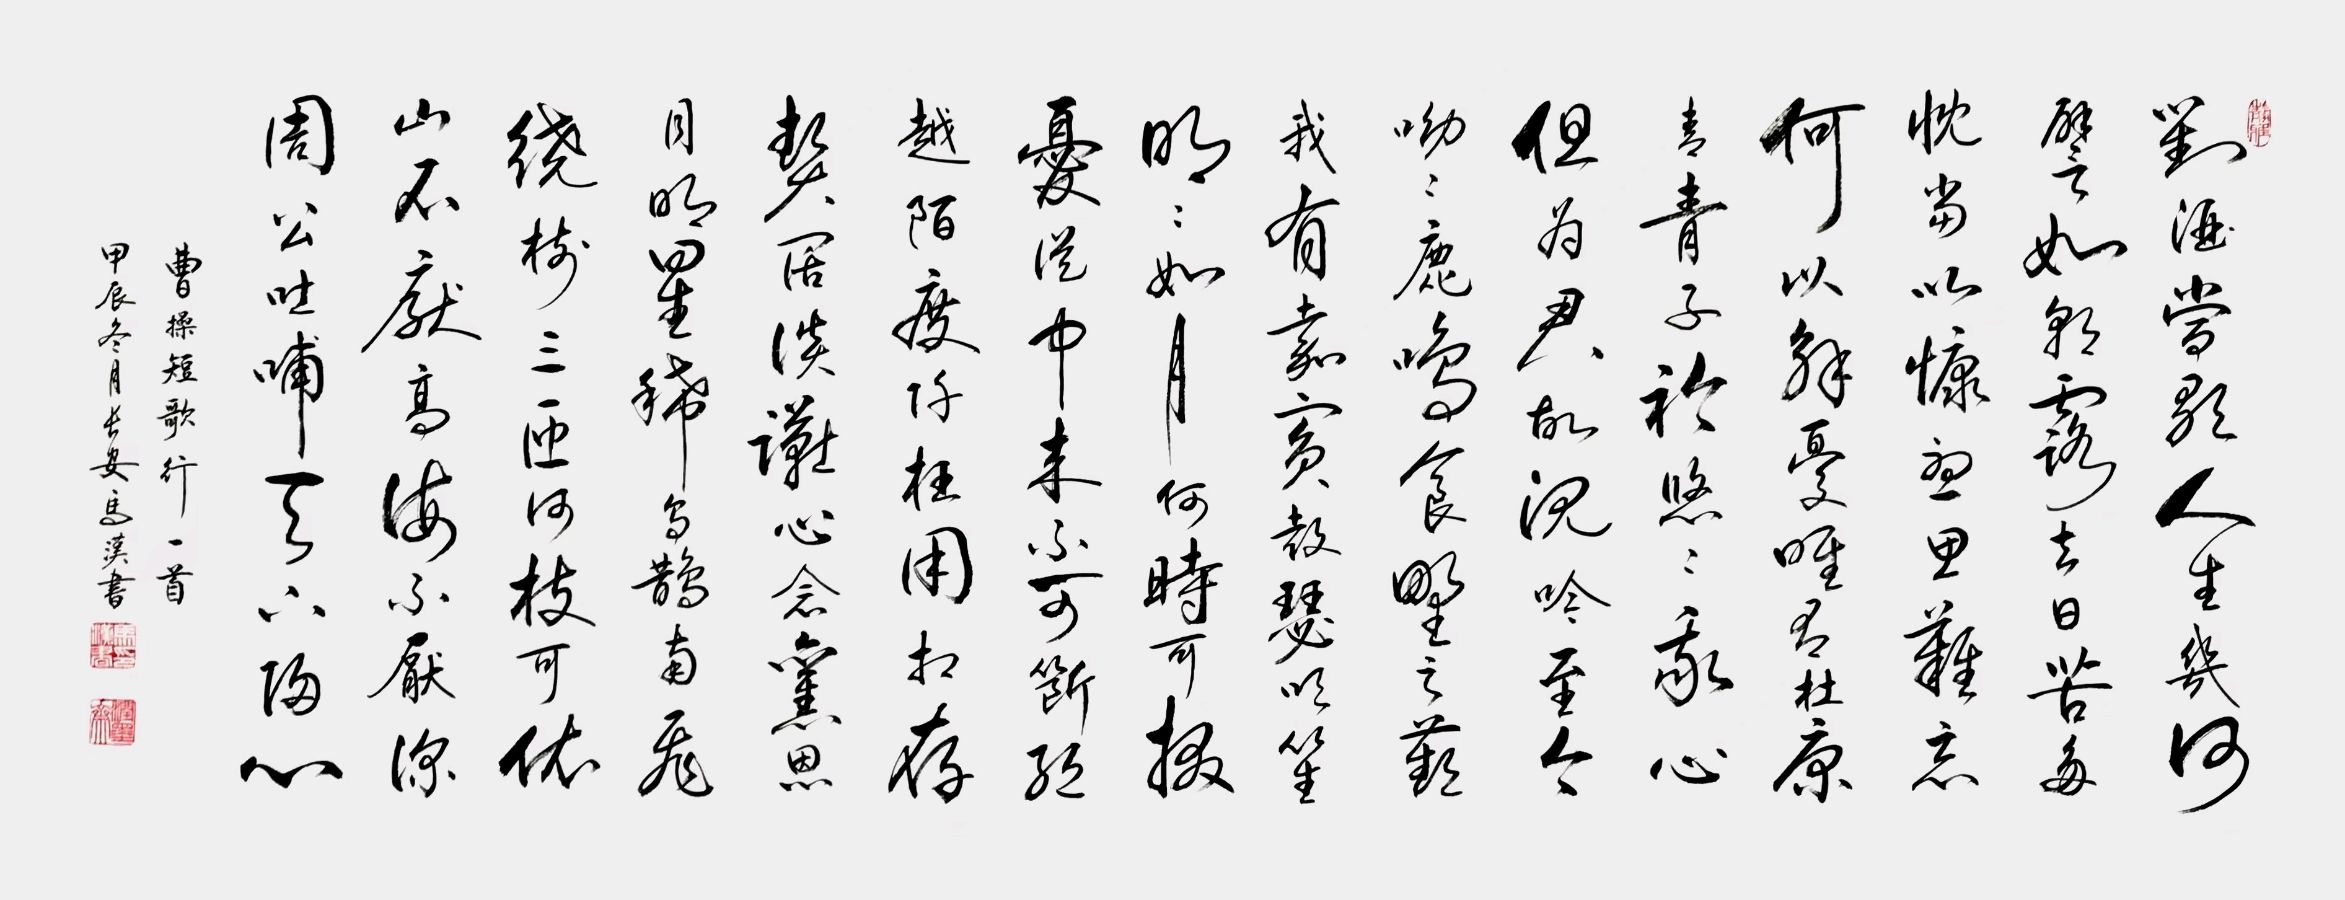 對酒當歌人生幾何
譬如朝露去日苦多
慨當以慷憂思難忘
何以解憂唯有杜康
青青子衿悠〻我心
但為君故沉吟至今
呦〻鹿鳴食野之蘋
我有嘉賓鼓瑟吹笙
明〻如月何時可掇
憂從中來不可斷絕
越陌度阡枉用相存
契闊談讌心念舊恩
月明星稀烏鵲南飛
繞樹三匝何枝可依
山不厭高海不厭深
周公吐哺天下歸心
曹操短歌行一首
甲辰冬月長安馬漢書